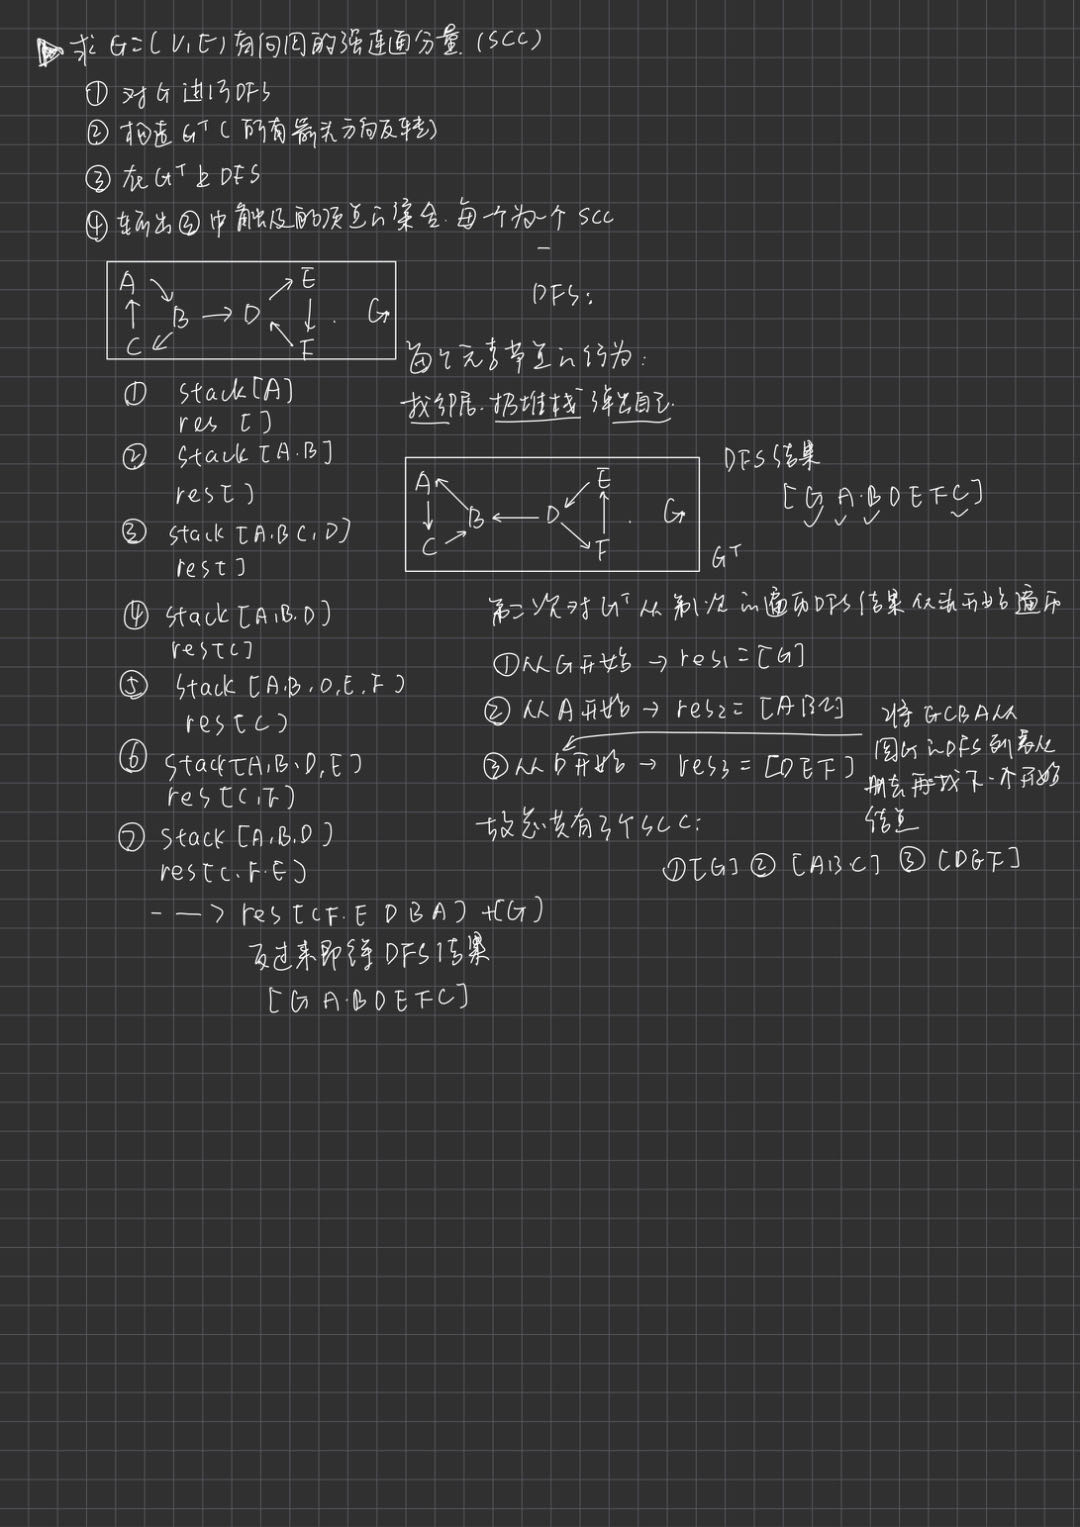 求 G=(V,E)有向图的强连通分量 (SCC)
① 对G进行DFS
② 构造 Gᵀ (所有箭头方向反转)
③ 在Gᵀ上DFS
④ 输出③中触及的顶点的集合. 每个为一个 SCC
A B C D E F . G
DFS:
每个元素节点的行为:
找邻居. 扔堆栈 弹出自己.
① stack[A]
res []
② stack [A.B]
res[]
③ stack [A.B C, D]
res[]
④ stack [A,B.D]
res[C]
⑤ stack [A.B.D,E,F]
res[C]
⑥ stack[A,B.D,E]
res[C,F]
⑦ stack [A,B.D]
res[C.F.E]
---> res [C F.E D B A] +[G]
反过来即得 DFS结果
[G A.B D E F C]
A B C D E F . G
Gᵀ
DFS结果
[G A.B D E F C]
第二次对 Gᵀ 从第1次的遍历DFS结果从头开始遍历
①从G开始 → res₁ = [G]
② 从A开始 → res₂ = [A B C]
③从D开始 → res₃ = [D E F]
将 GCBA从
图G的DFS列表从
删去再找下一个开始
结点
故总共有3个SCC:
①[G] ② [A B.C] ③ [D E F]